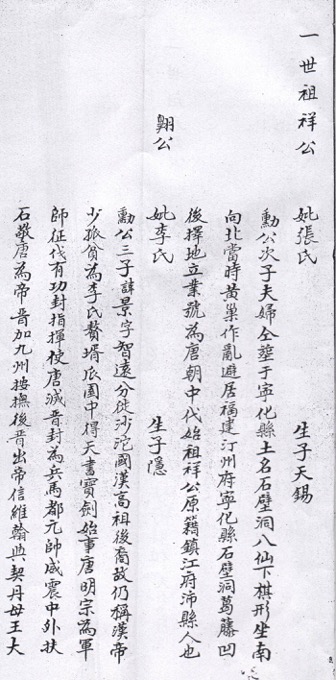 一世祖祥公
妣張氏 生子天錫
勳公次子夫婦仝塟于寧化縣土名石壁洞八仙下棋形坐南
向北當時黃巢作亂避居福建汀州府寧化縣石壁洞葛藤凹
後擇地立業號為唐朝中代始祖祥公原籍鎮江府沛縣人也
翺公 妣李氏 生子隱
勳公三子諱景字智遠分徙沙沱國漢高祖後裔故仍稱漢帝
少孤貧為李氏贅壻瓜園中得天書寶劍始事唐明宗為軍
師征伐有功封指揮使唐滅晉封為兵馬都元帥威震中外扶
石敬唐為帝晋加九州按撫後晋出帝信維翰與契丹毋王大